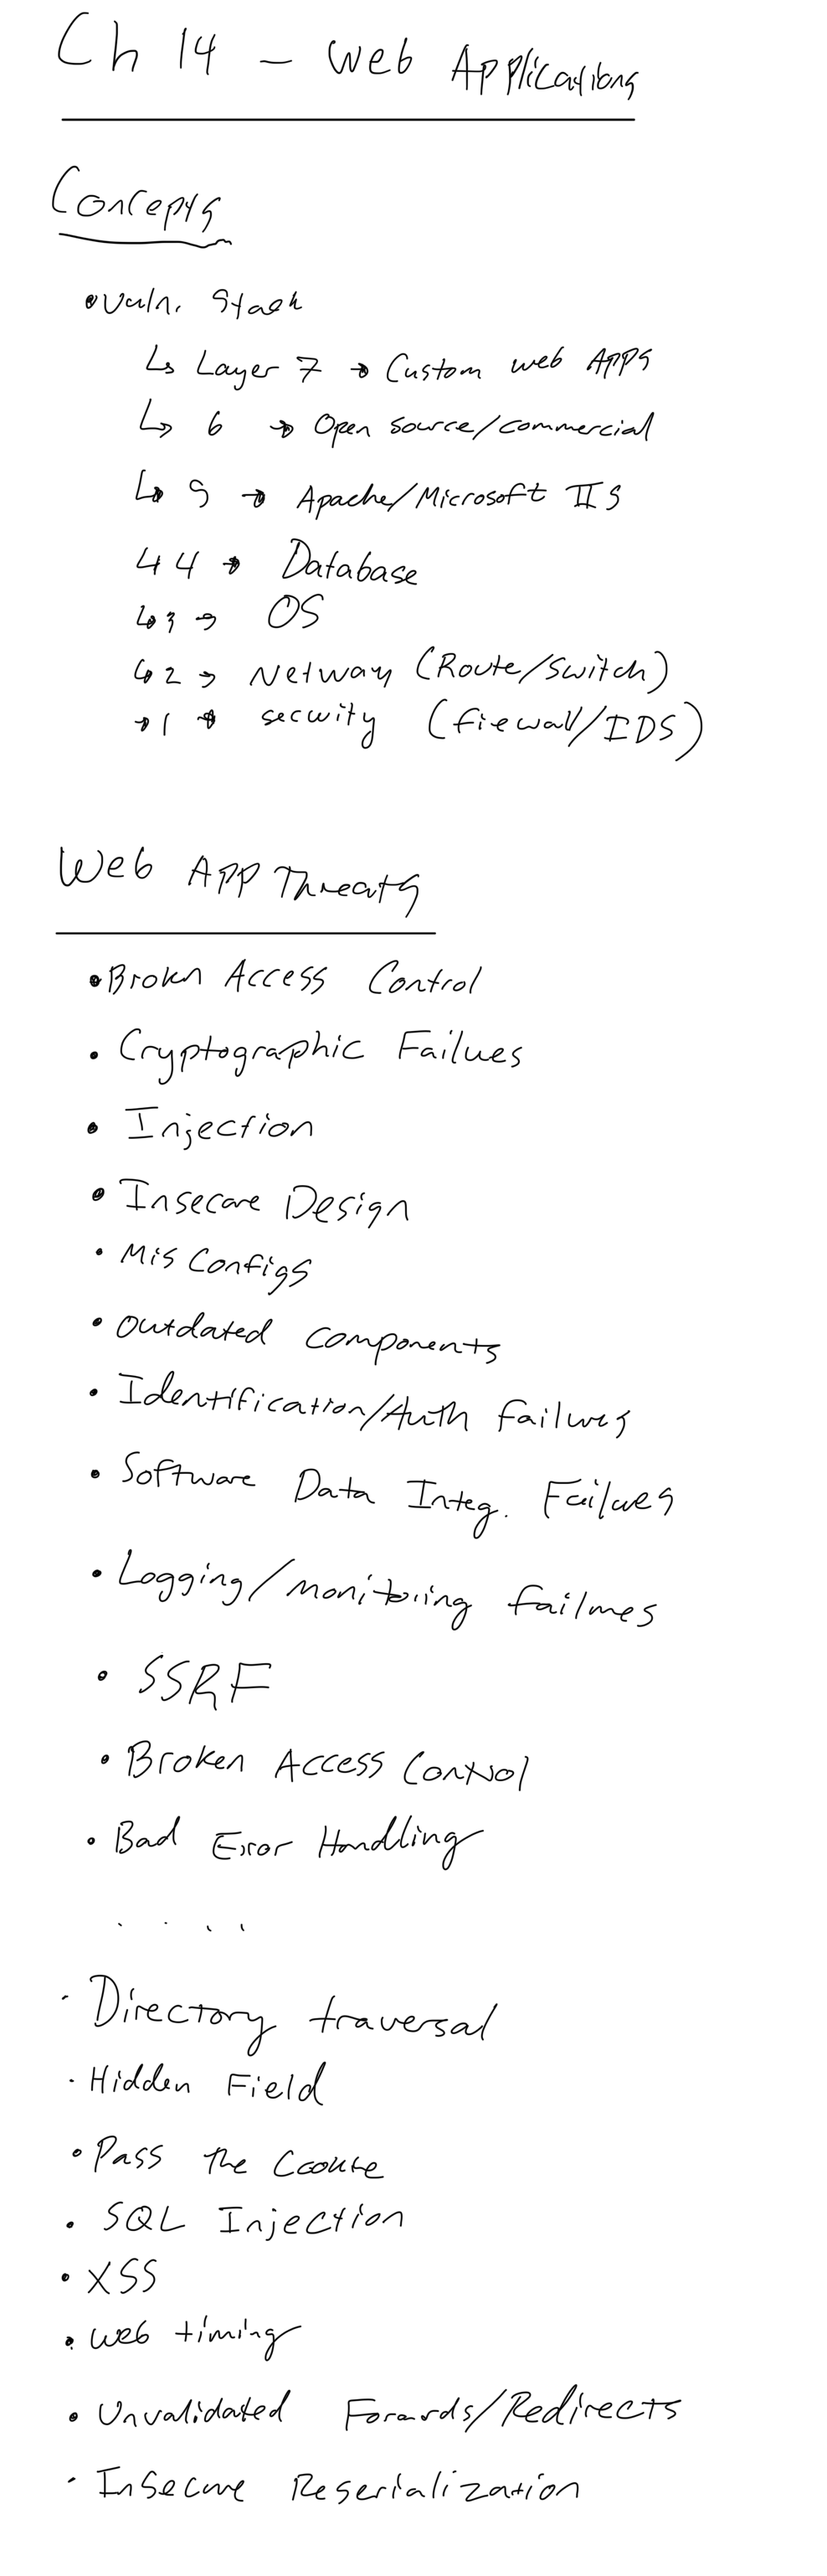 Ch 14 - Web Applications
Concepts
• Vuln. Stack
↳ Layer 7 → Custom web Apps
↳ 6 → Open source/commercial
↳ 5 → Apache/Microsoft IIS
↳ 4 → Database
↳ 3 → OS
↳ 2 → Netway (Route/Switch)
→ 1 → security (fiewall/IDS)
Web App Threats
• Broken Access Control
• Cryptographic Failues
• Injection
• Insecure Design
• Mis Configs
• Outdated components
• Identification/Auth failures
• Software Data Integ. Failues
• Logging/monitoring failures
• SSRF
• Broken Access Control
• Bad Error Handling
. . . .
• Directory traversal
• Hidden Field
• Pass the Cookie
• SQL Injection
• XSS
• Web timing
• Unvalidated Forwards/Redirects
• Insecure Reserialization